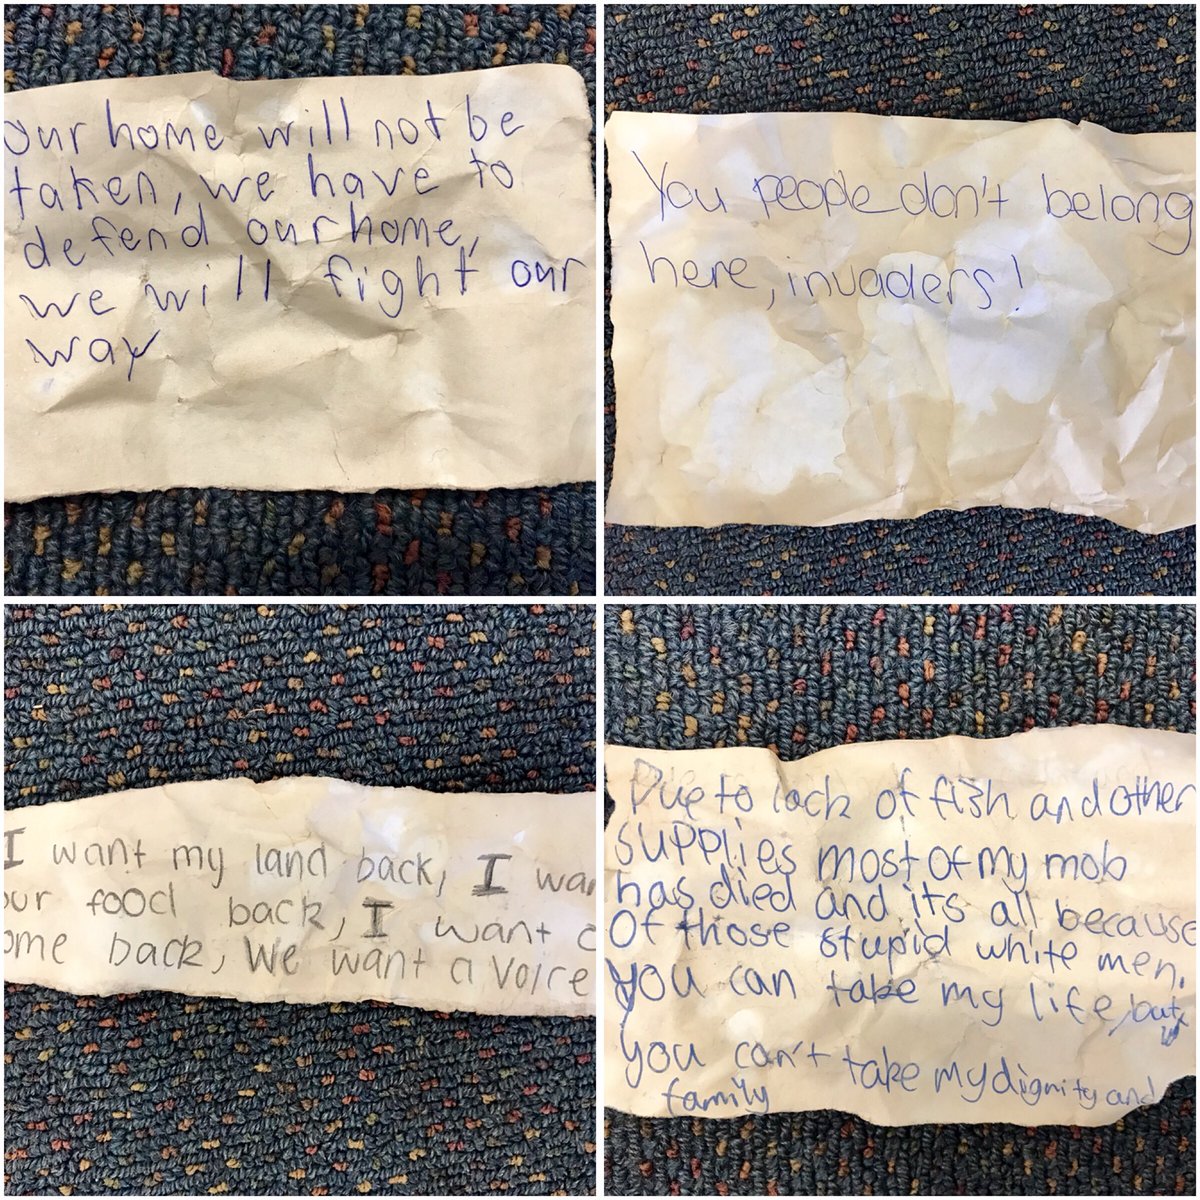 our home will not be
taken, we have to
defend our home,
we will fight our
way
You people don't belong
here, invaders!
I want my land back, I wa
our food back, I want
ome back, We want a voice
Due to lack of fish and other
supplies most of my mob
has died and its all because
of those stupid white men.
you can take my life, but
you can't take my dignity and
family